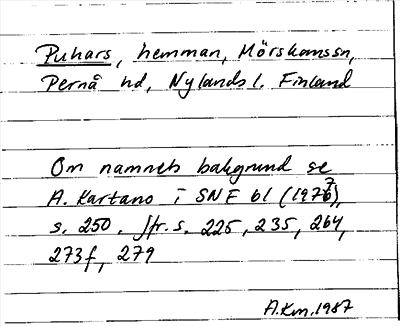 Puhars, hemman, Mörskomssn,
Pernå hd, Nylands l. Finland
Om namnets bakgrund se
A. Kartano i SNF 61 (1977),
s. 250. Jfr. s. 225, 235, 264,
273f, 279
A.Km. 1987